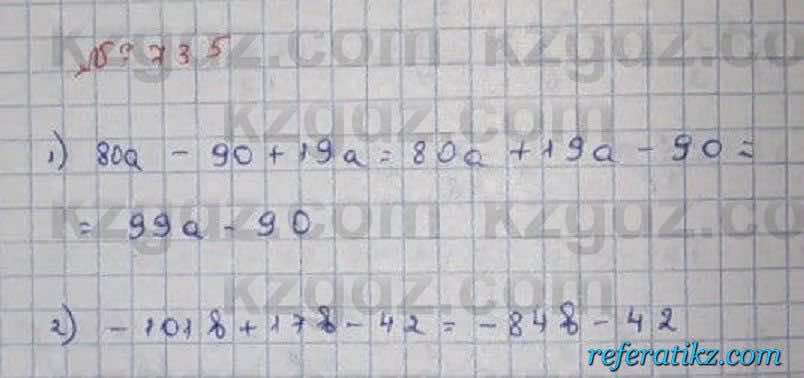 kzgdz.com kzgdz.com
№ 735
kzgdz.com
1) 80a - 90 + 19a = 80a + 19a - 90 =
kzgdz.com kzgdz.com
= 99a - 90
kzgdz.com
2) - 101в + 17в - 42 = - 84в - 42
referatikz.com